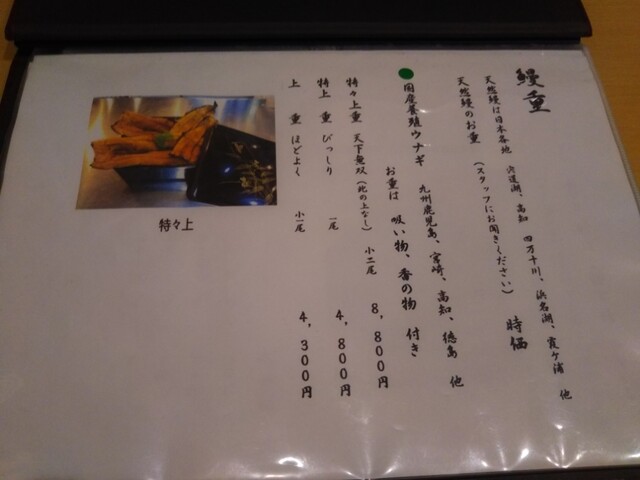 鰻重
天然鰻は日本各地 宍道湖、高知 四万十川、浜名湖、霞ケ浦 他
天然鰻のお重 (スタッフにお聞きください) 時価
●国産養殖ウナギ 九州鹿児島、宮崎、高知、徳島 他
お重は 吸い物、香の物 付き
特々上重 天下無双(此の上なし) 小二尾 8,800円
特上重 びっしり 一尾 4,800円
上重 ほどよく 小一尾 4,300円
特々上